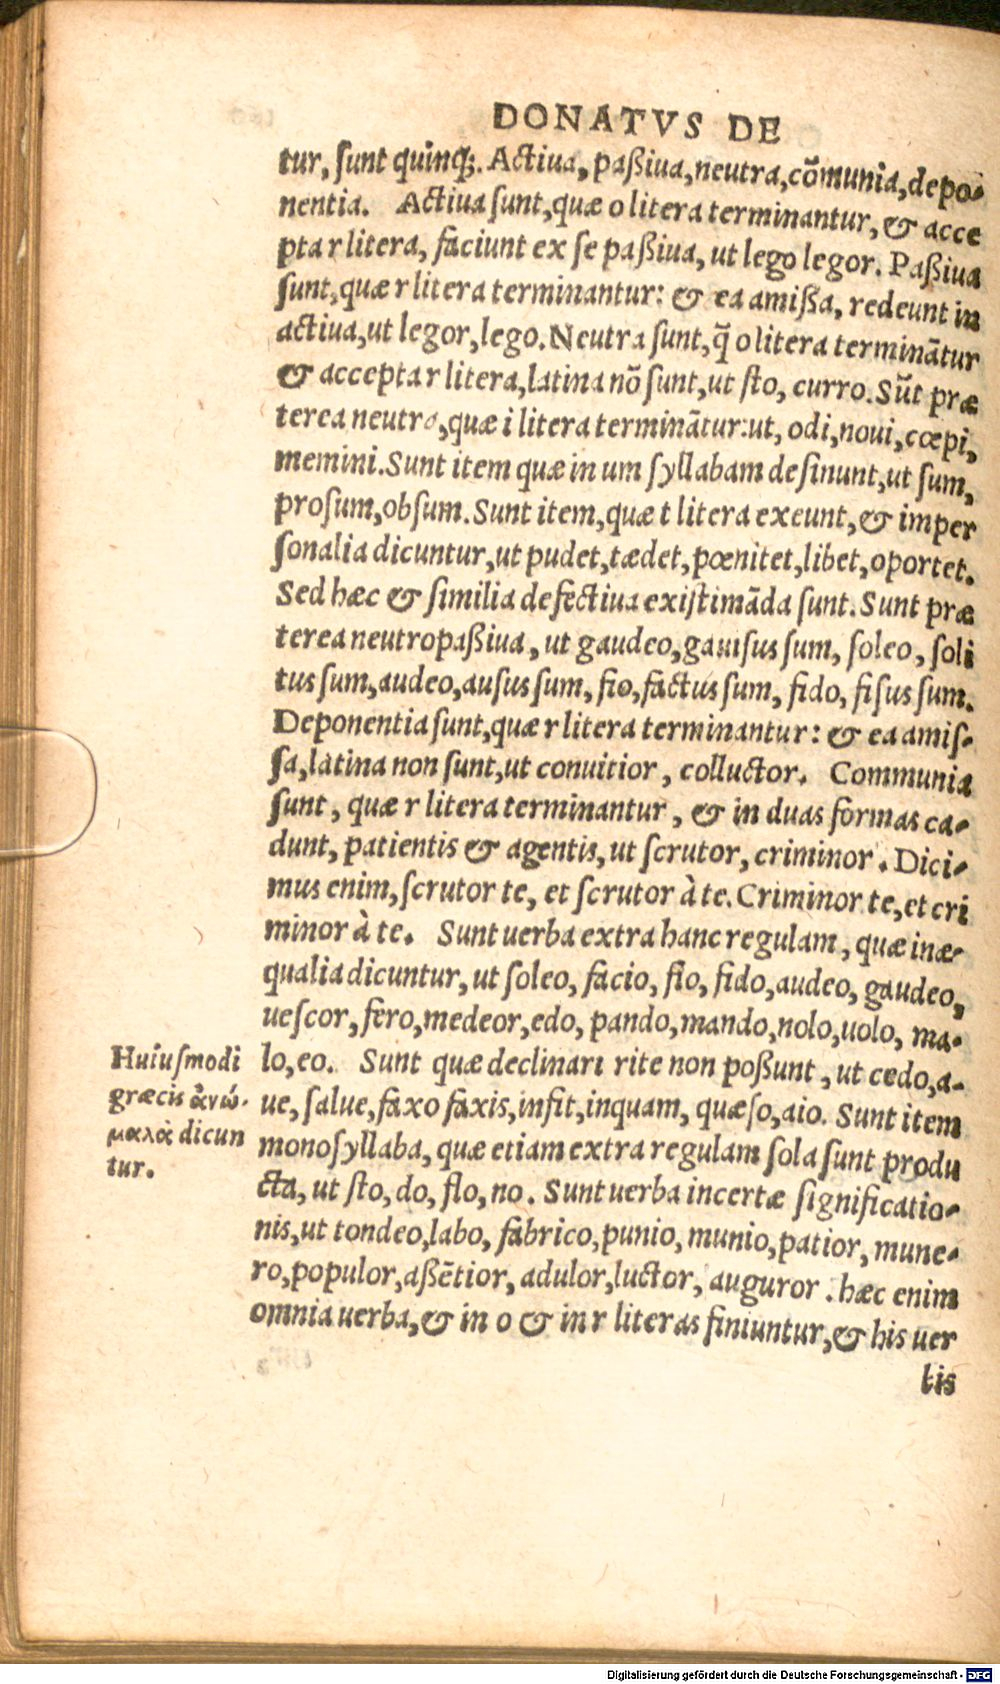 DONATVS DE
tur, sunt quinq;. Actiua, paßiua, neutra, cõmunia, depo-
nentia. Actiua sunt, quæ o litera terminantur, & acce
pta r litera, faciunt ex se paßiua, ut lego legor. Paßiua
sunt, quæ r litera terminantur: & ea amißa, redeunt in
actiua, ut legor, lego. Neutra sunt, q̃ o litera terminãtur
& accepta r litera, latina nõ sunt, ut sto, curro. Sũt præ
terea neutra, quæ i litera terminãtur: ut, odi, noui, cœpi,
memini. Sunt item quæ in um syllabam desinunt, ut sum,
prosum, obsum. Sunt item, quæ t litera exeunt, & imper
sonalia dicuntur, ut pudet, tædet, pœnitet, libet, oportet.
Sed hæc & similia defectiua existimãda sunt. Sunt præ
terea neutropaßiua, ut gaudeo, gauisus sum, soleo, soli
tus sum, audeo, ausus sum, fio, factus sum, fido, fisus sum.
Deponentia sunt, quæ r litera terminantur: & ea amis-
sa, latina non sunt, ut conuitior, colluctor. Communia
sunt, quæ r litera terminantur, & in duas formas ca-
dunt, patientis & agentis, ut scrutor, criminor. Dici-
mus enim, scrutor te, et scrutor à te. Criminor te, et cri
minor à te. Sunt uerba extra hanc regulam, quæ inæ-
qualia dicuntur, ut soleo, facio, fio, fido, audeo, gaudeo,
uescor, fero, medeor, edo, pando, mando, nolo, uolo, ma-
lo, eo. Sunt quæ declinari rite non poßunt, ut cedo, a-
ue, salue, faxo faxis, infit, inquam, quæso, aio. Sunt item
monosyllaba, quæ etiam extra regulam sola sunt produ
cta, ut sto, do, flo, no. Sunt uerba incertæ significatio-
nis, ut tondeo, labo, fabrico, punio, munio, patior, mune-
ro, populor, aßẽtior, adulor, luctor, auguror. hæc enim
omnia uerba, & in o & in r literas finiuntur, & his uer
bis
Huiusmodi
græcis ἀνώ-
μαλα dicun
tur.
Digitalisierung gefördert durch die Deutsche Forschungsgemeinschaft - DFG